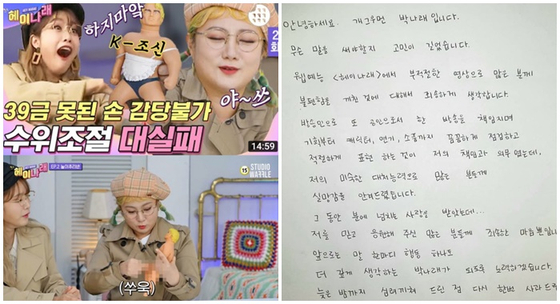 헤이나래
하지마악
K-조신
2
화
야~쓰
39금 못된 손 감당불가
수위조절 대실패
14:59
헤이나래
15 STUDIO WAFFLE
(쑤욱)
안녕하세요. 개그우먼 박나래 입니다.
무슨 말을 써야할지 고민이 깊었습니다.
웹예능 <헤이나래>에서 부적절한 영상으로 많은 분께
불편함을 끼친 것에 대해서 죄송하게 생각합니다.
방송인으로 또 공인으로서 한 방송을 책임지며
기획부터 캐릭터, 연기, 소품까지 꼼꼼하게 점검하고
적절하게 표현 하는 것이 저의 책임과 의무 였는데,
저의 미숙한 대처능력으로 많은 분들께
실망감을 안겨드렸습니다.
그 동안 분에 넘치는 사랑을 받았는데...
저를 믿고 응원해 주신 많은 분들께 죄송한 마음 뿐입니
앞으로는 말 한마디 행동 하나도
더 깊게 생각하는 박나래가 되도록 노력하겠습니다.
늦은 밤까지 심려끼쳐 드린 점 다시 한번 사과드